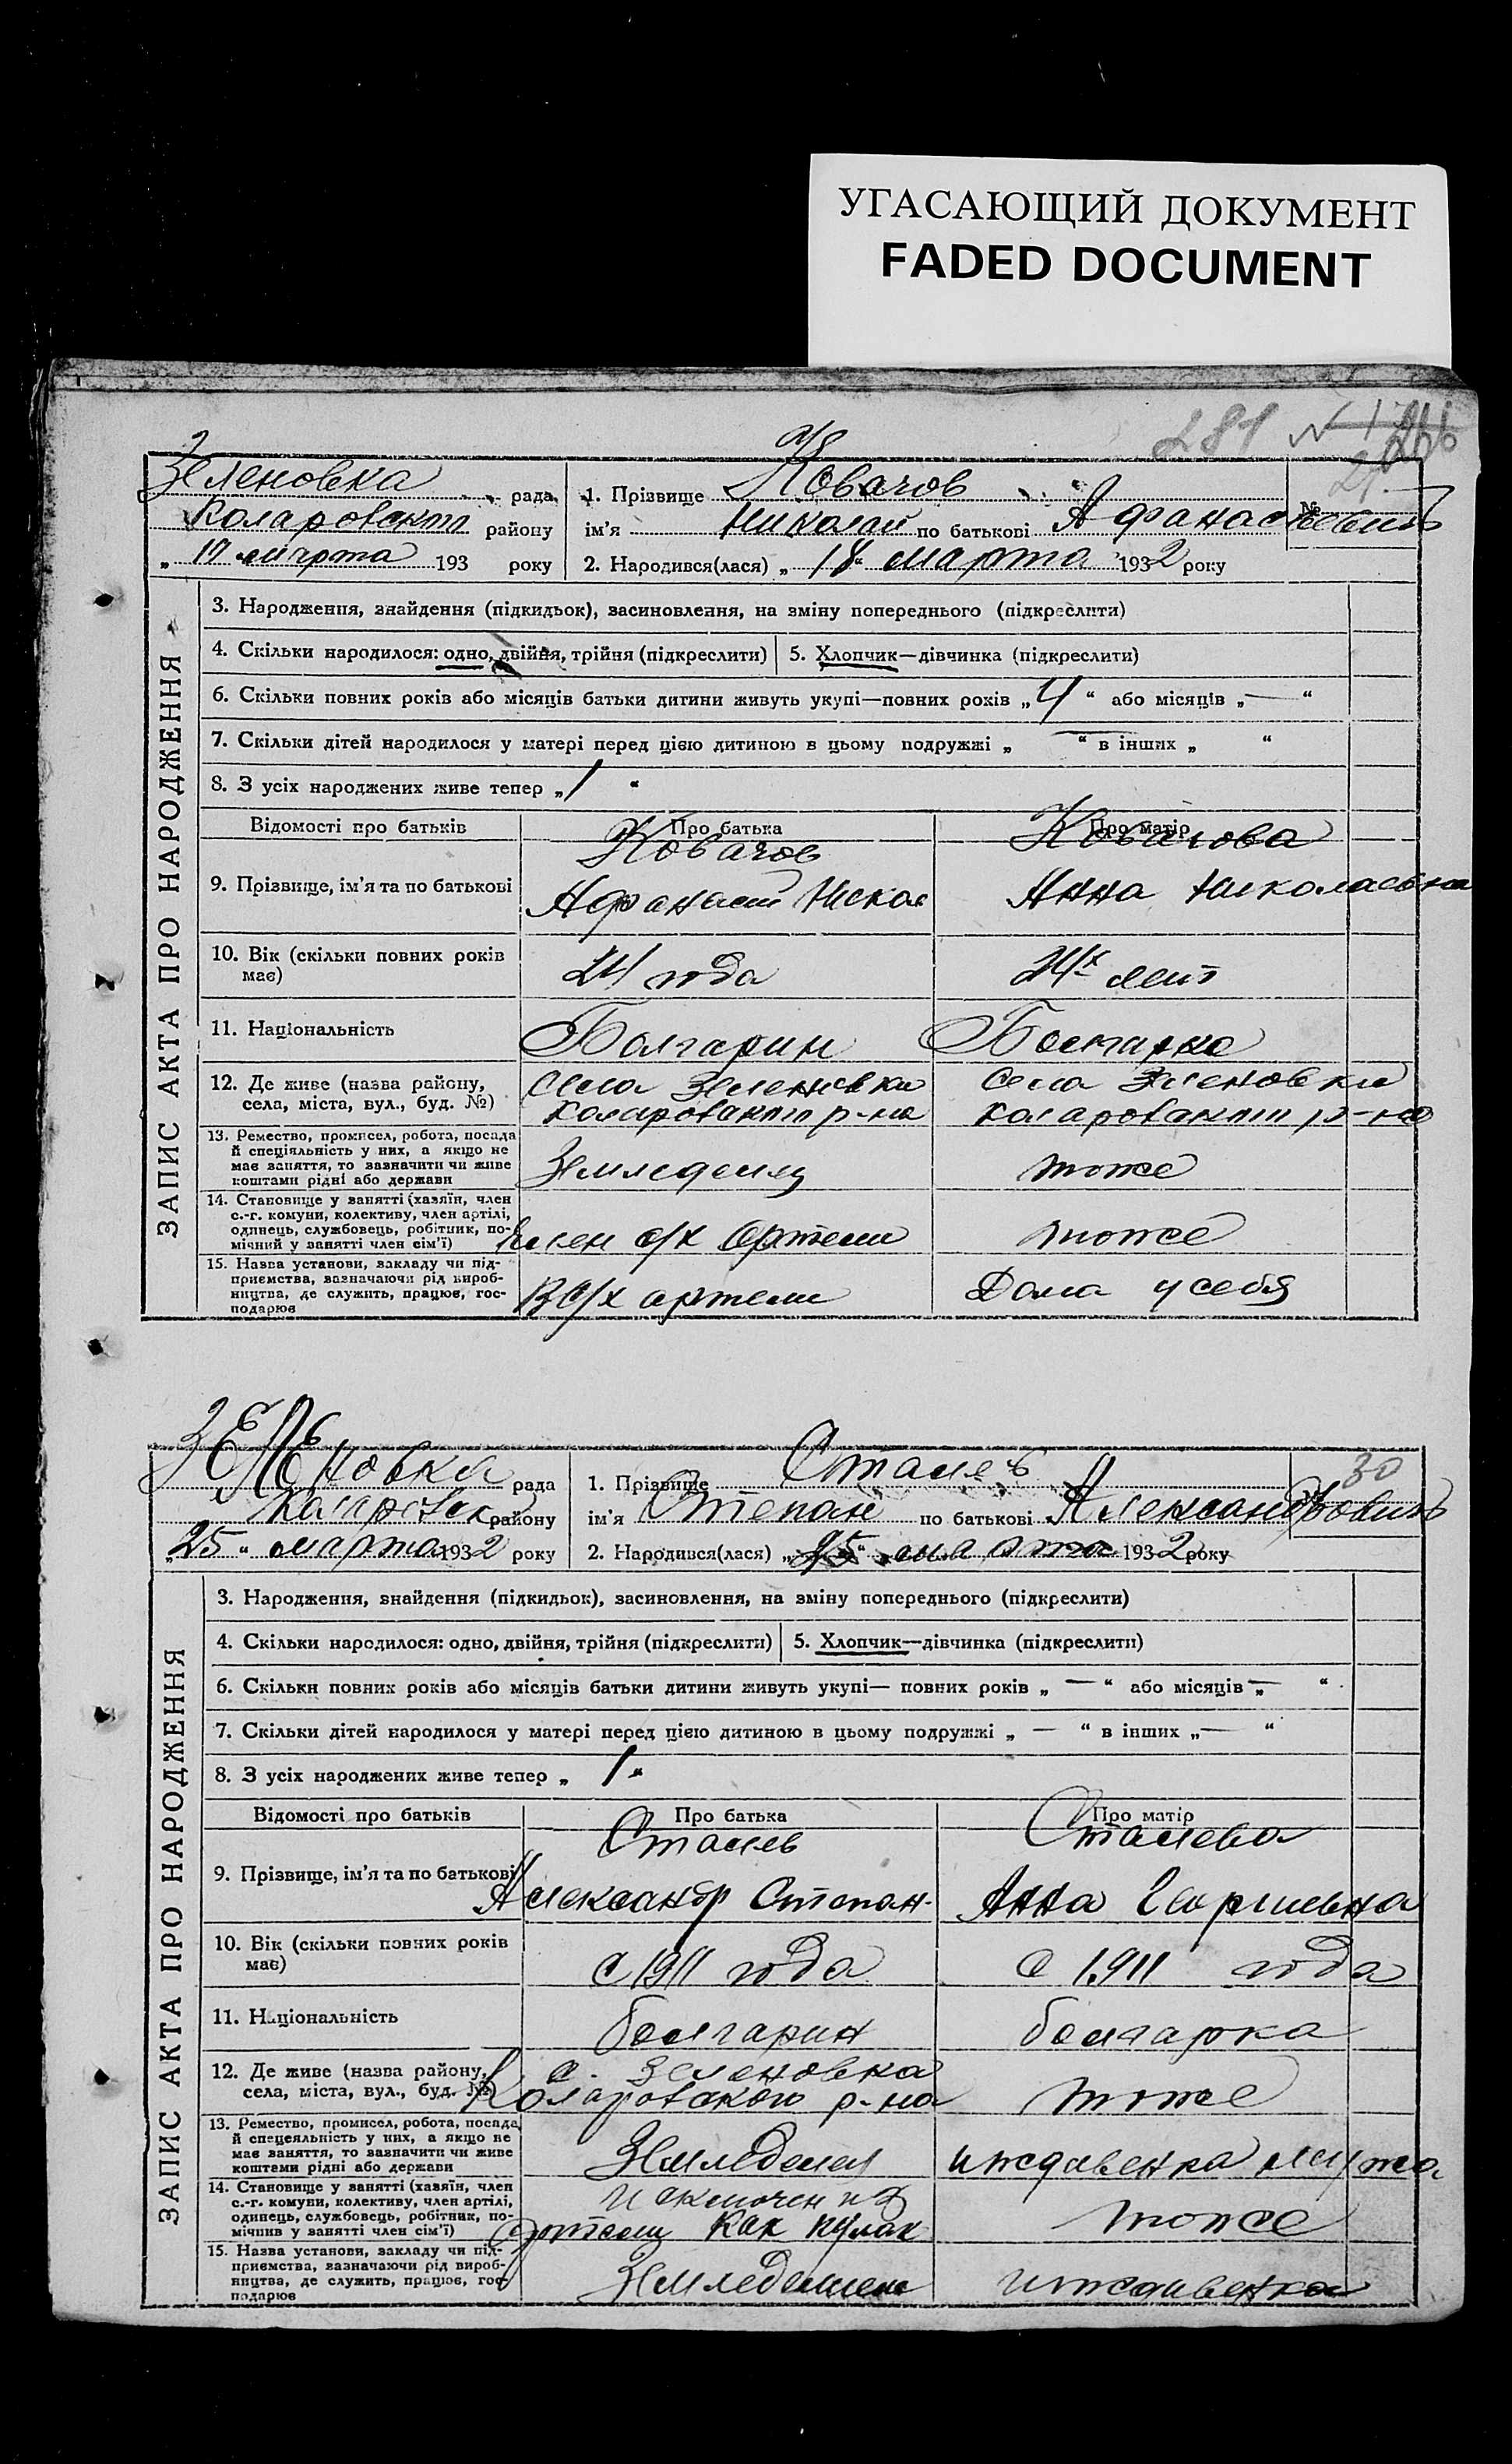 УГАСАЮЩИЙ ДОКУМЕНТ
FADED DOCUMENT
281
Зеленовка рада
Коларовский району
" марта 193 року
1. Прізвище Ковачов
ім'я Николай по батькові Афанасиевич
№
2. Народився(лася) „ 18 " марта 1932 року
ЗАПИС АКТА ПРО НАРОДЖЕННЯ
3. Народження, знайдення (підкидьок), засиновлення, на зміну попереднього (підкреслити)
4. Скільки народилося: одно, двійня, трійня (підкреслити) 5. Хлопчик—дівчинка (підкреслити)
6. Скільки повних років або місяців батьки дитини живуть укупі—повних років „ 4 " або місяців „ — "
7. Скільки дітей народилося у матері перед цією дитиною в цьому подружжі „ — " в інших „ "
8. З усіх народжених живе тепер „ 1 "
Відомості про батьків Про батька Про матір
9. Прізвище, ім'я та по батькові
Ковачов
Афанасий Никол
Ковачова
Анна Николаевна
10. Вік (скільки повних років має)
24 года
24х лет
11. Національність
Болгарин
Болгарка
12. Де живе (назва району,
села, міста, вул., буд. №)
Села Зеленовки
Коларовский р-на
Села Зеленовки
Коларовский р-на
13. Ремество, промисел, робота, посада
й спеціяльність у них, а якщо не
має заняття, то зазначити чи живе
коштами рідні або держави
Земледелец
тоже
14. Становище у занятті (хазяїн, член
с.-г. комуни, колективу, член артілі,
одинець, службовець, робітник, по-
мічний у занятті член сім'ї)
Член с/х Артели
тоже
15. Назва установи, закладу чи під-
приємства, зазначаючи рід вироб-
ництва, де служить, працює, гос-
подарює
В с/х артели
Дома у себя
ЗЕЛЕновка рада
району
„ 25 " марта 1932 року
1. Прізвище Сталев
ім'я Степан по батькові Александрович
30
2. Народився(лася) „ 25 " марта 1932 року
ЗАПИС АКТА ПРО НАРОДЖЕННЯ
3. Народження, знайдення (підкидьок), засиновлення, на зміну попереднього (підкреслити)
4. Скільки народилося: одно, двійня, трійня (підкреслити) 5. Хлопчик—дівчинка (підкреслити)
6. Скільки повних років або місяців батьки дитини живуть укупі— повних років „ — " або місяців „ — "
7. Скільки дітей народилося у матері перед цією дитиною в цьому подружжі „ — " в інших „ — "
8. З усіх народжених живе тепер „ 1 "
Відомості про батьків Про батька Про матір
9. Прізвище, ім'я та по батькові
Сталев
Александр Степан.
Сталева
Анна Георгиевна
10. Вік (скільки повних років
має)
с 1911 года
с 1911 года
11. Національність
болгарин
болгарка
12. Де живе (назва району,
села, міста, вул., буд. №)
с. Зеленовка
Коларовского р-на
тоже
13. Ремество, промисел, робота, посада
й спецеяльність у них, а якщо не
має заняття, то зазначити чи живе
коштами рідні або держави
Земледелец
иждивенка мужа
14. Становище у занятті (хазяїн, член
с.-г. комуни, колективу, член артілі,
одинець, службовець, робітник, по-
мічния у занятті член сім'ї)
Исключен из
артели как кулак
тоже
15. Назва установи, закладу чи під-
приємства, зазначаючи рід вироб-
ництва, де служить, працює, гос-
подарює
Земледелием
иждивенка